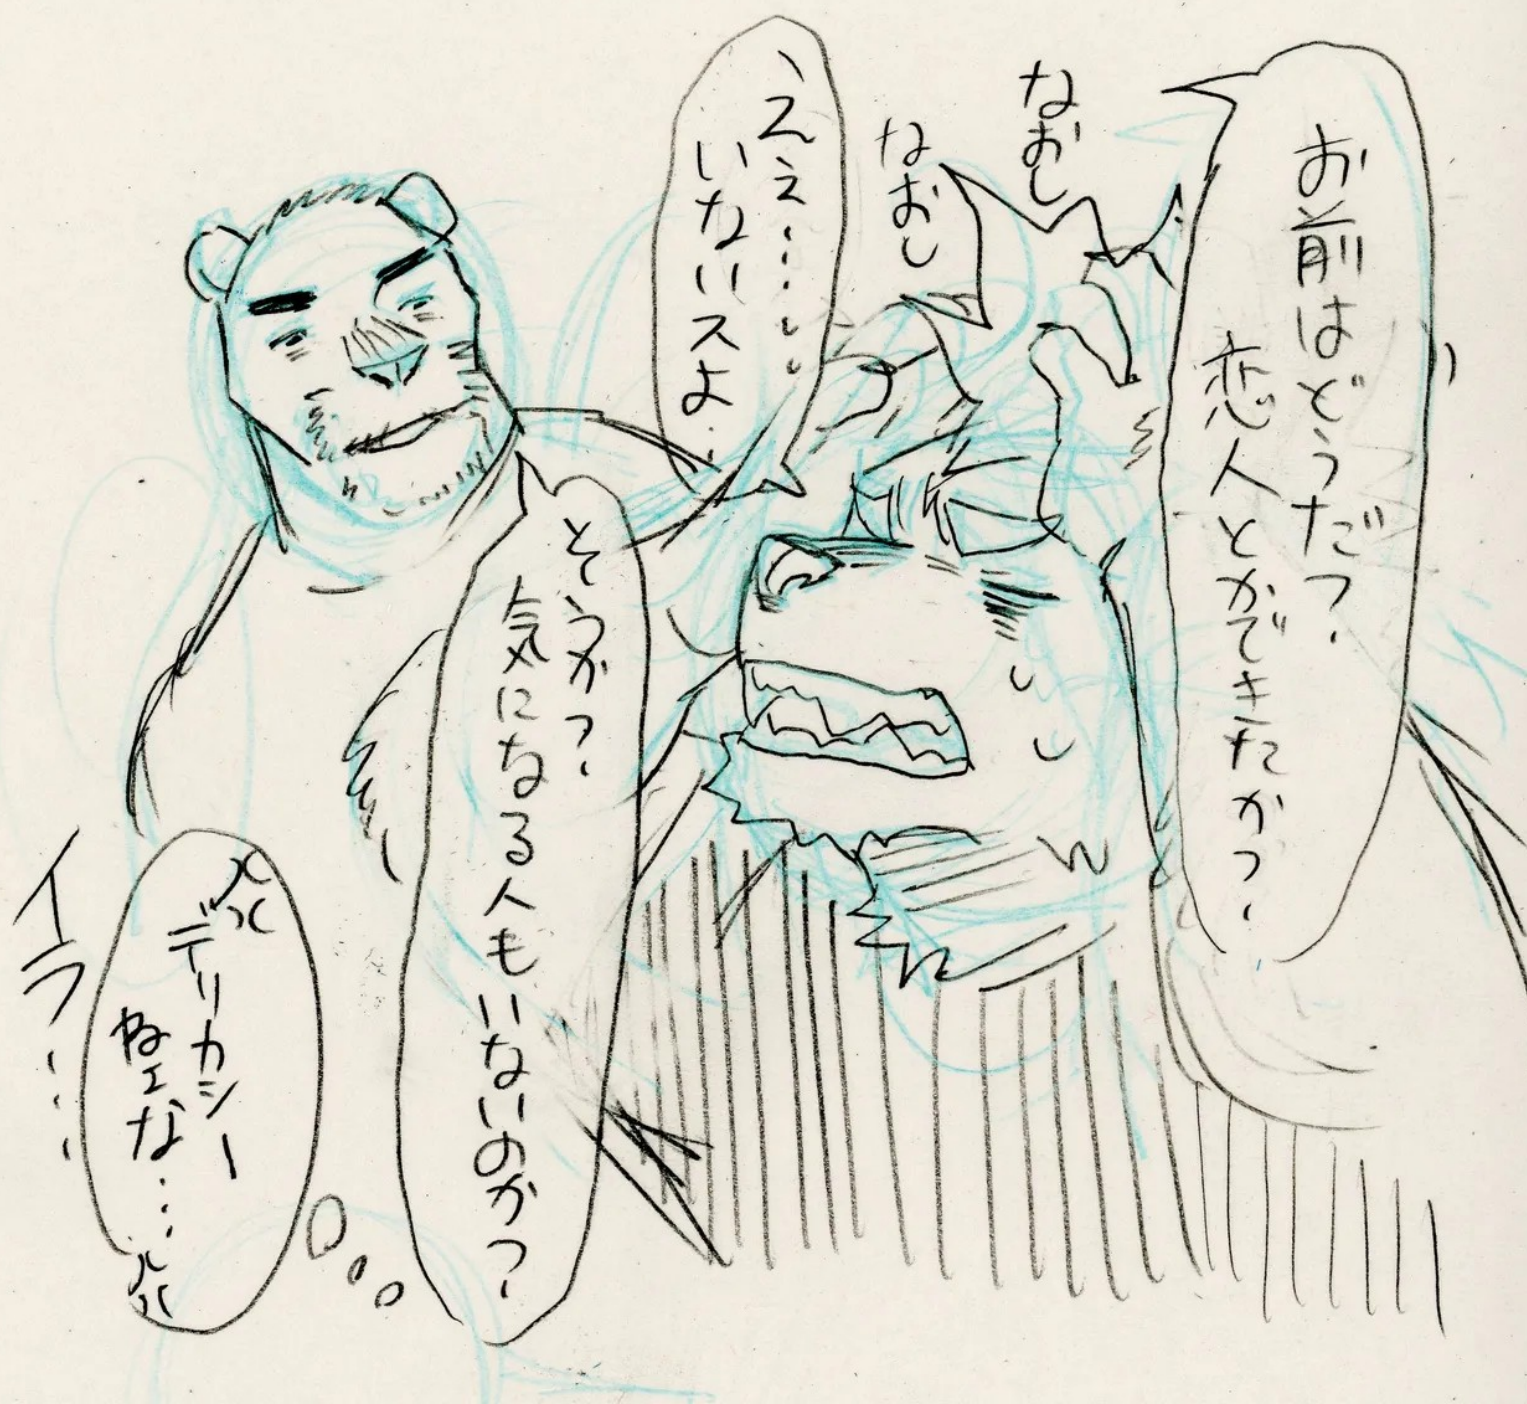 お前はどうだ?
恋人とかできたか?
なおし
なおし
、ええ……
いないスよ…
そうか?
気になる人もいないのか?
デリカシー
ねェな…
イラ…